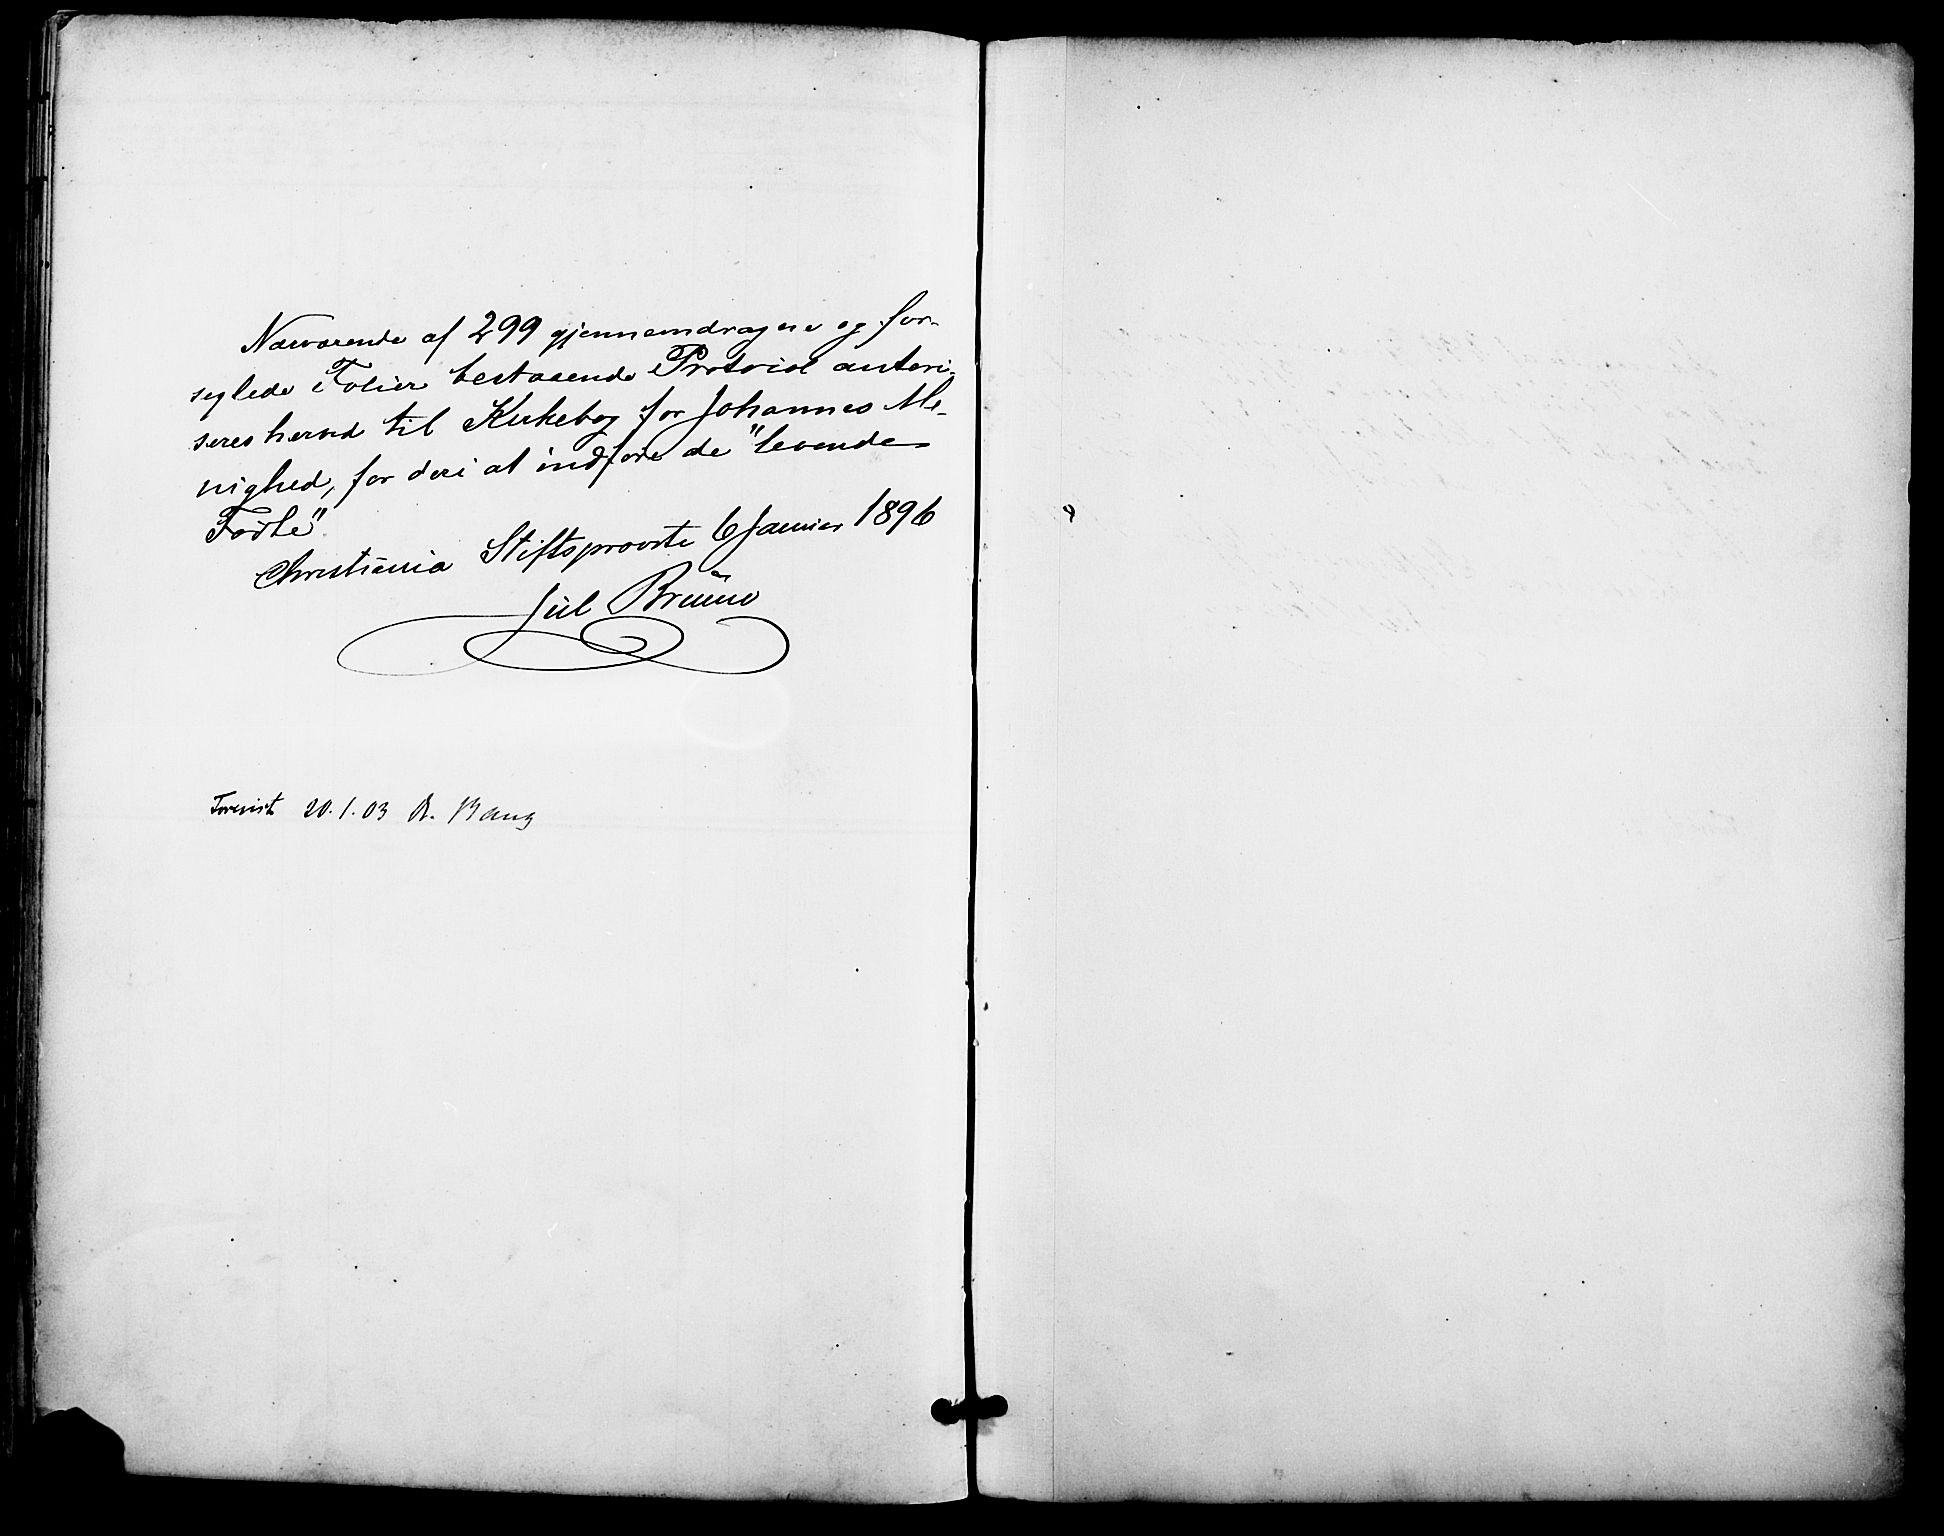 Nærværende af 299 gjennemdragne og for-
seglede Folier bestaaende Protocol autori-
seres herved til Kirkebog for Johannes Me-
nighed, for deri at indføre de "levende
Fødte".
Christiania Stiftsprovsti 6 Januar 1896
Jul Bruun
Forevist 20.1.03 A. Bang